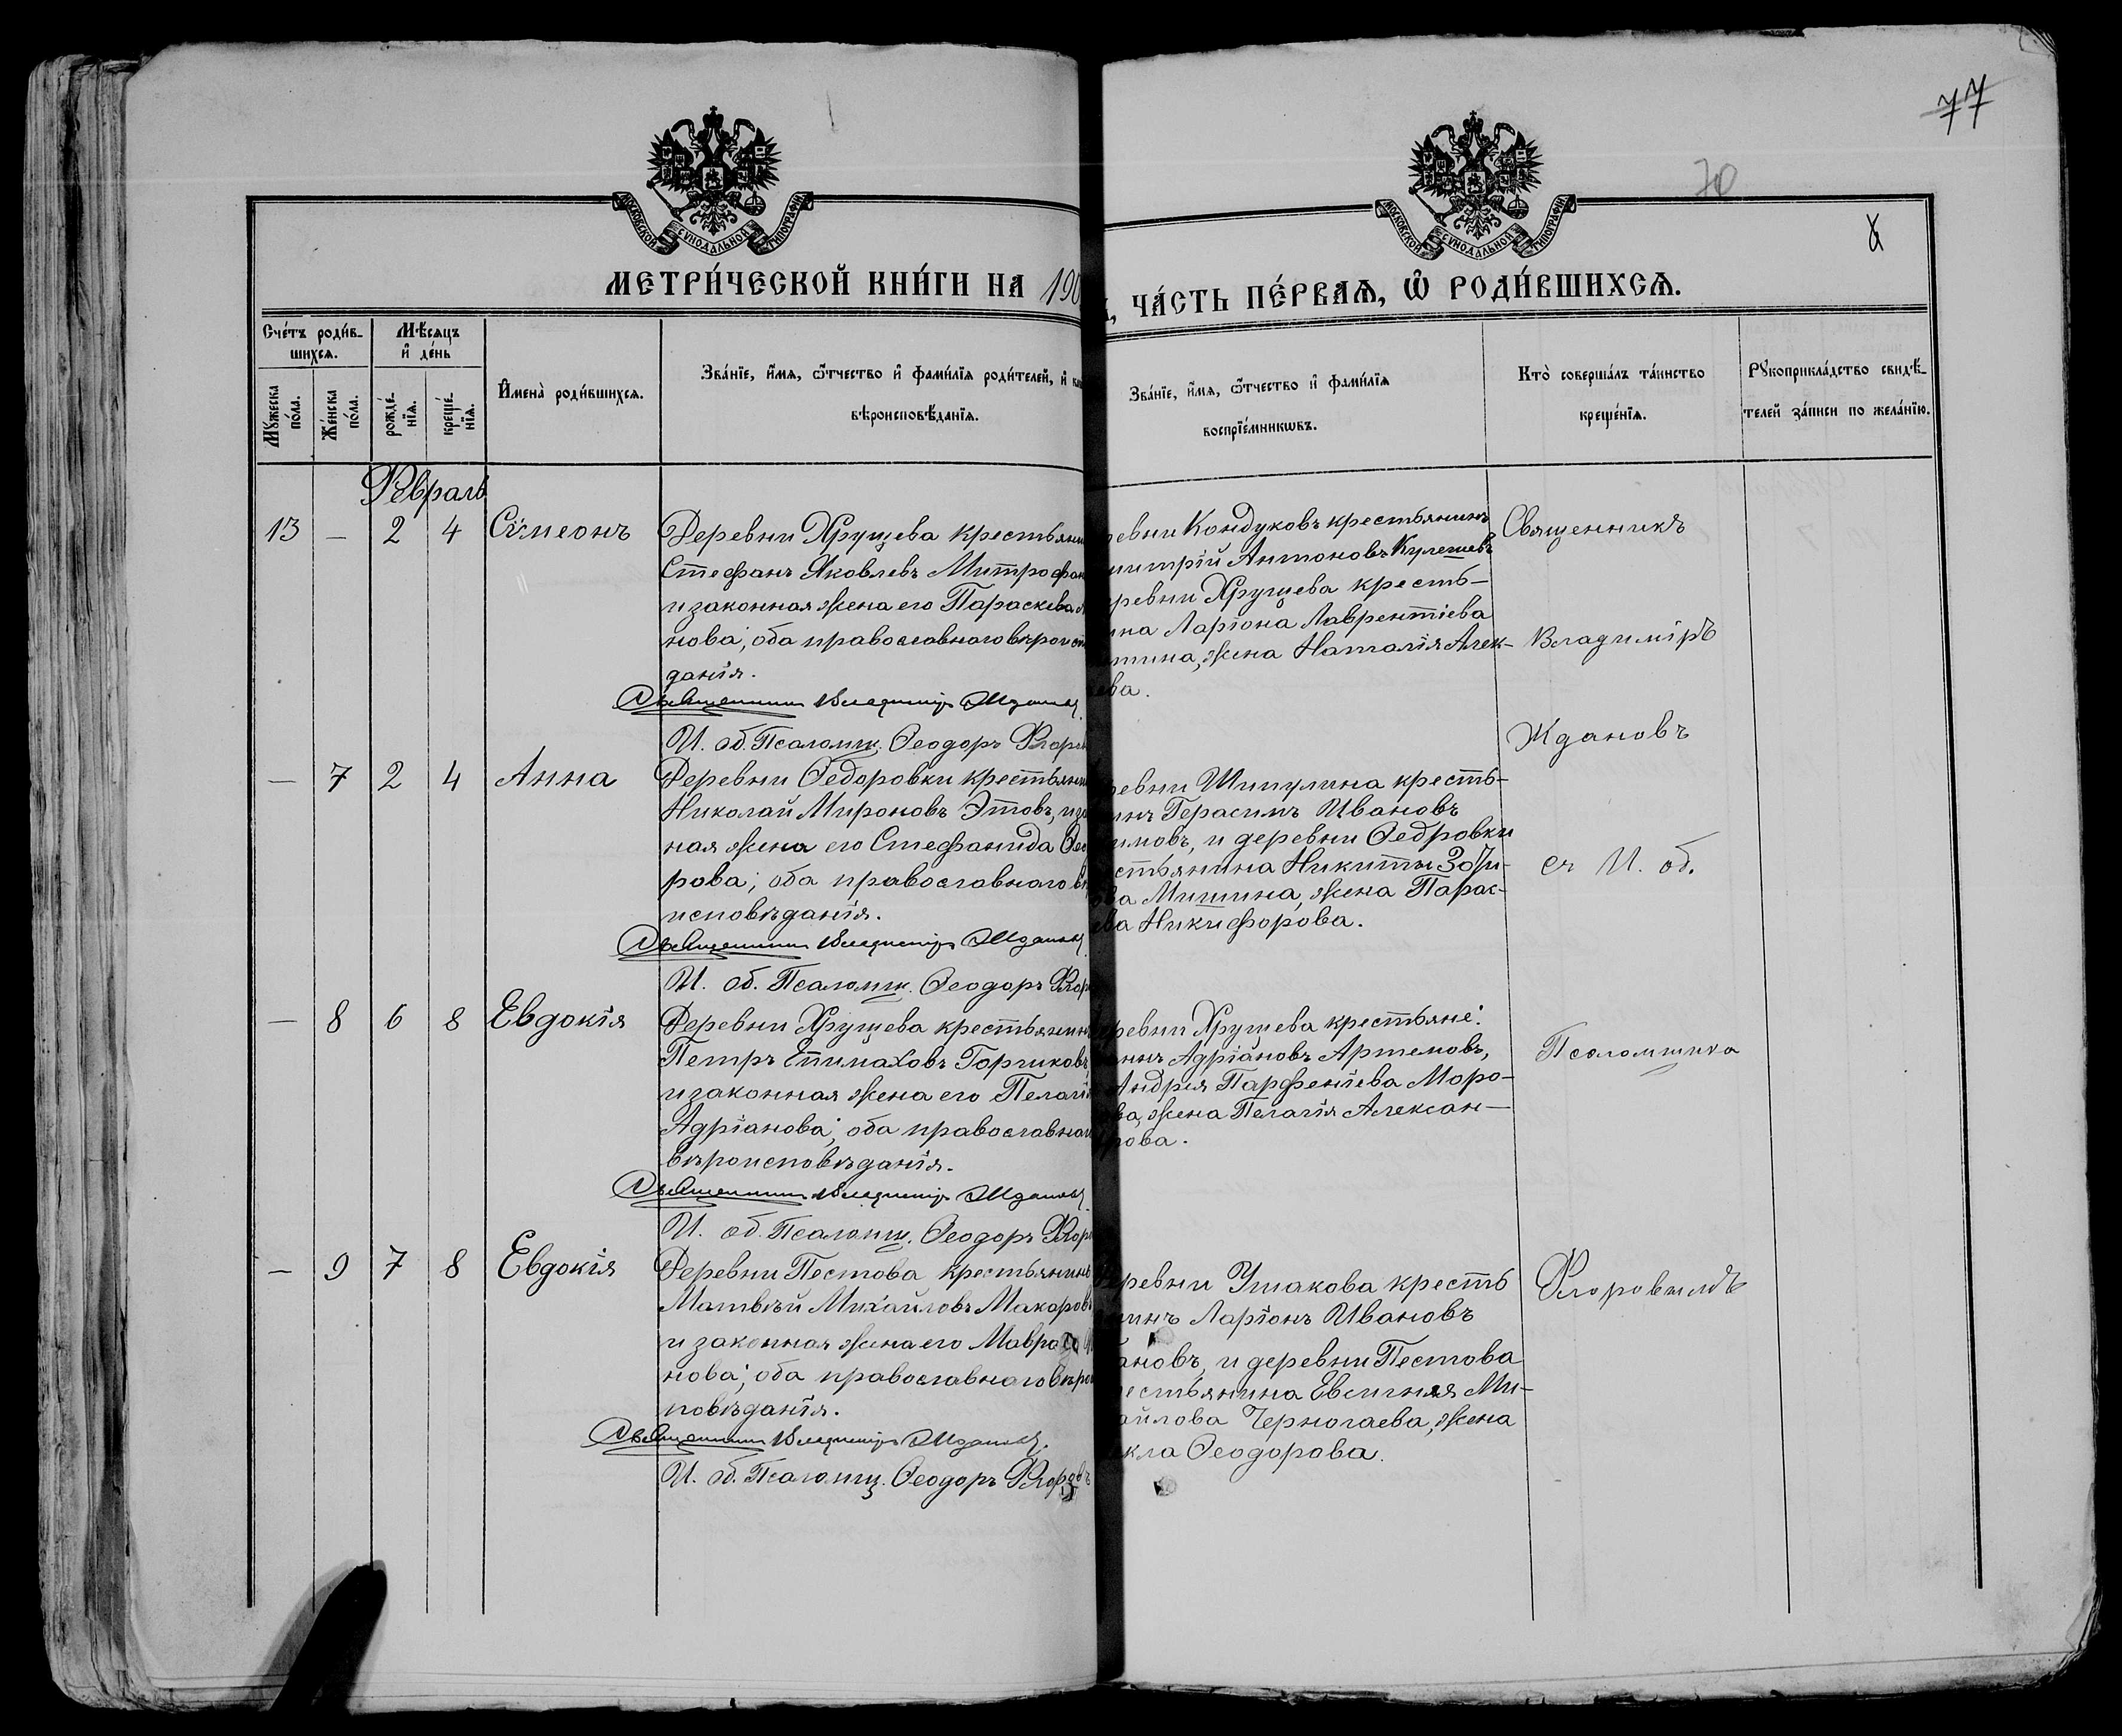 77
70
8
МОСКОВСКОЙ СУНОДАЛЬНОЙ ТИПОГРАФІИ
МОСКОВСКОЙ СУНОДАЛЬНОЙ ТИПОГРАФІИ
МЕТРИ́ЧЕСКОЙ КНИ́ГИ НА 190
ЧА́СТЬ ПЕ́РВАѦ, Ѡ РОДИ́ВШИХСѦ.
Сче́тъ роди́в-
шихсѧ.
Мꙋжеска
по́ла.
Же́нска
по́ла.
Мѣ́сѧцъ
и де́нь
рожде́-
нїѧ.
креще́-
нїѧ.
И҆мена̀ роди́вшихсѧ.
Зва́нїе, и҆́мѧ, ѻ҆́тчество и҆ фами́лїѧ роди́телей, и҆
вѣроисповѣ́данїѧ.
Зва́нїе, и҆́мѧ, ѻ҆́тчество и҆ фами́лїѧ
воспрїе́мникѡвъ.
Кто̀ соверша́лъ та́инство
креще́нїѧ.
Рꙋкоприкла́дство свидѣ́-
телей за́писи по жела́нїю.
Февраль
13 — 2 4 Сѵмеонъ
Деревни Хрущева крестьяни
Стефанъ Яковлевъ Митрофан
и законная жена его Параскева
нова; оба православнаго вѣроисп
данія.
Священникъ Владиміръ Жданов
И. об. Псаломщ. Ѳеодоръ Флор
ревни Кондуковъ крестьянинъ
митрій Антоновъ Кулешевъ
ревни Хрущева кресть-
ина Ларіона Лаврентіева
тина, жена Наталія Алек-
ева.
Священникъ
Владиміръ
Ждановъ
— 7 2 4 Анна
Деревни Ѳедоровки крестьяни
Николай Мироновъ Этовъ, и за
ная жена его Стефанида Ѳео
рова; оба православнаго вѣ
исповѣданія.
Священникъ Владиміръ Жданов
И. об. Псаломщ. Ѳеодоръ Флор
ревни Шипулина кресть-
инъ Герасимъ Ивановъ
имовъ, и деревни Ѳедровки
стьянина Никиты Зоти-
ова Мишина, жена Парас-
ева Никифорова.
съ И. об.
— 8 6 8 Евдокія
Деревни Хрущева крестьянинъ
Петръ Епимаховъ Горчиковъ,
и законная жена его Пелагія
Адріанова; оба православнаг
вѣроисповѣданія.
Священникъ Владиміръ Жданов
И. об. Псаломщ. Ѳеодоръ Флор
ревни Хрущева крестьяне:
Адріановъ Артемовъ,
Андрея Парфеніева Моро-
ва, жена Пелагія Алексан-
рова.
Псаломщика
— 9 7 8 Евдокія
Деревни Пестова крестьянинъ
Матвѣй Михайловъ Макаровъ
и законная жена его Мавра
нова; оба православнаго вѣрои
повѣданія.
Священникъ Владиміръ Жданов.
И. об. Псаломщ. Ѳеодоръ Флоровъ
ревни Ушакова кресть
нинъ Ларіонъ Ивановъ
ановъ, и деревни Пестова
рестьянина Евсигнея Ми-
айлова Черногаева, жена
екла Ѳеодорова.
Флоровымъ